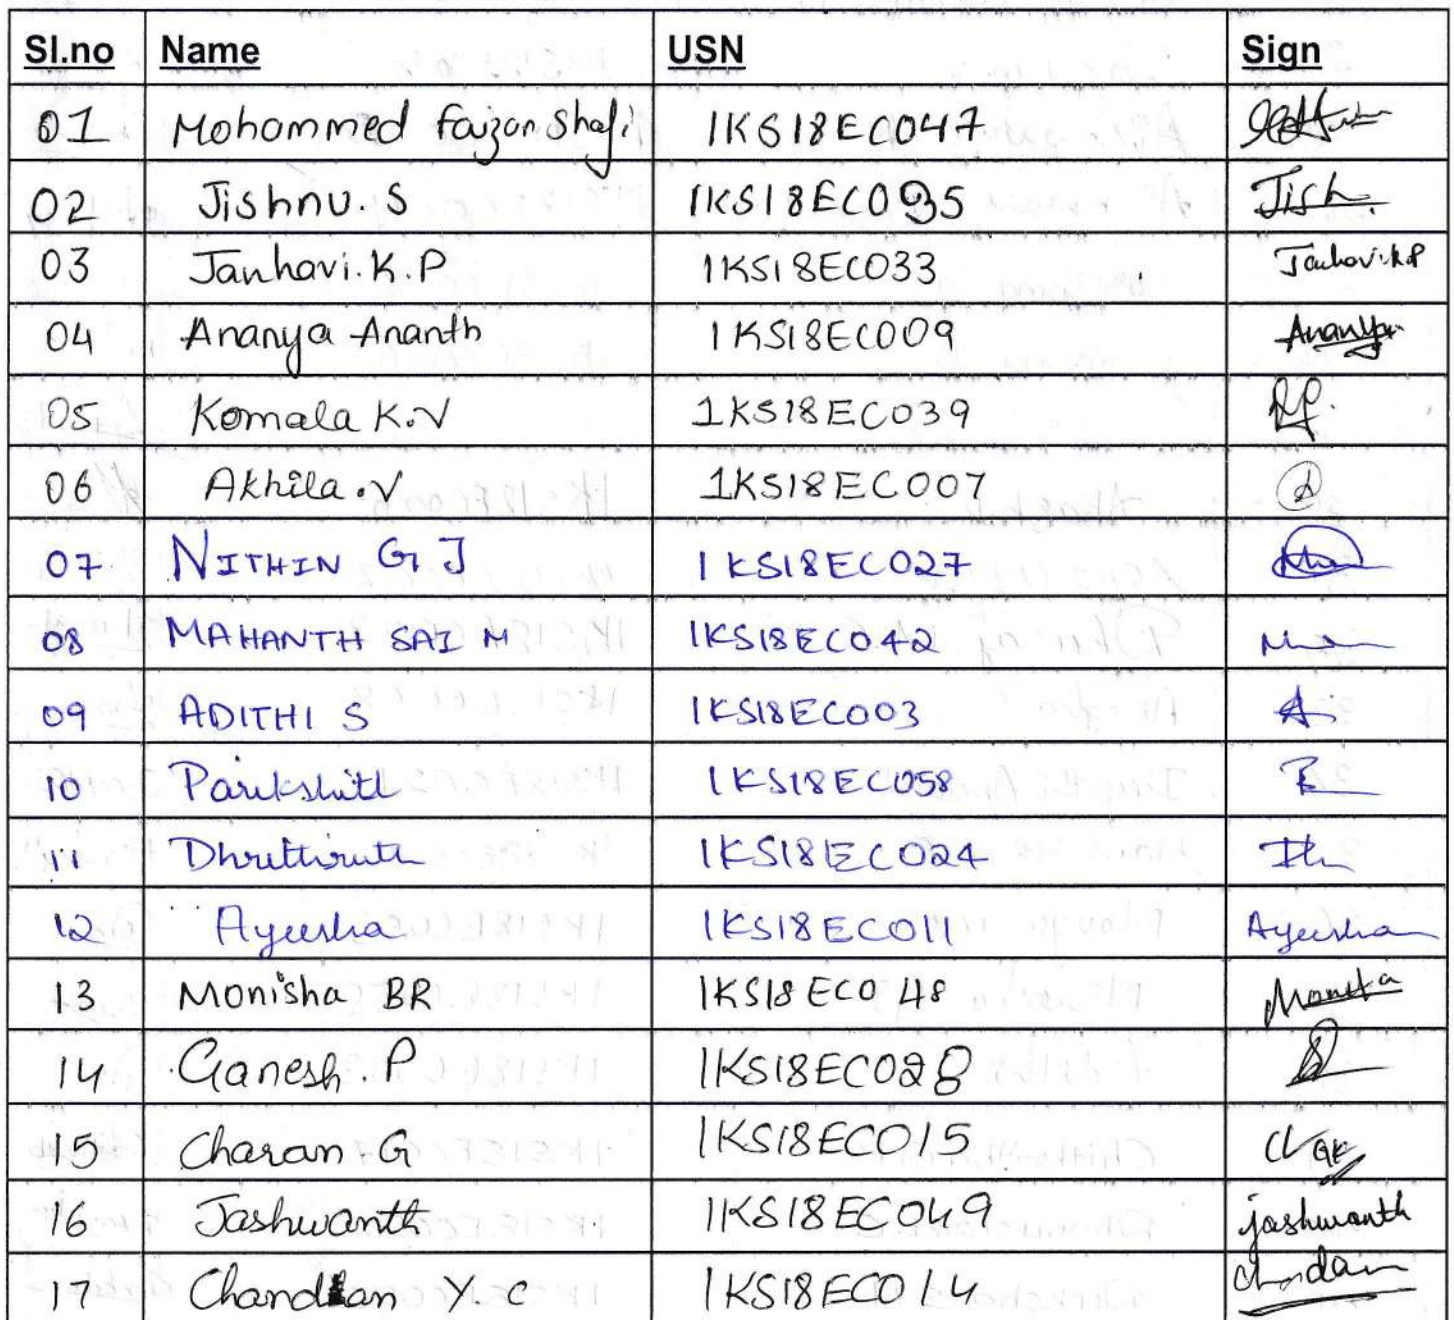 Sl.no Name USN Sign
01 Mohammed Faizan Shafi 1KS18EC047
02 Jishnu.S 1KS18EC035 Jish
03 Janhavi.K.P 1KS18EC033 Janhavi.k.P
04 Ananya Ananth 1KS18EC009 Ananya
05 Komala K.V 1KS18EC039
06 Akhila.V 1KS18EC007
07 NITHIN G J 1KS18EC027
08 MAHANTH SAI M 1KS18EC042
09 ADITHI S 1KS18EC003 A
10 Parikshith 1KS18EC058
11 1KS18EC024
12 Ayeesha 1KS18EC011 Ayeesha
13 Monisha BR 1KS18EC048 Monisha
14 Ganesh.P 1KS18EC028
15 Charan G 1KS18EC015
16 Jashwanth 1KS18EC049 jashwanth
17 Chandan Y.C 1KS18EC014 Chandan